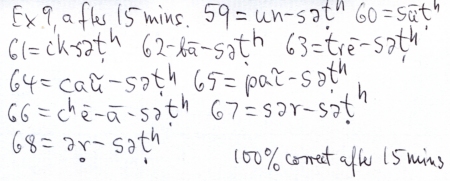 Ex 9, after 15 mins. 59=un-səṭʰ 60=sāṭʰ
61=ik-səṭʰ 62-bā-səṭʰ 63=trē-səṭʰ
64=caũ-səṭʰ 65=paĩ-səṭʰ
66=cʰē-ā-səṭʰ 67=sər-səṭʰ
68=əṛ-səṭʰ
100% correct after 15 mins